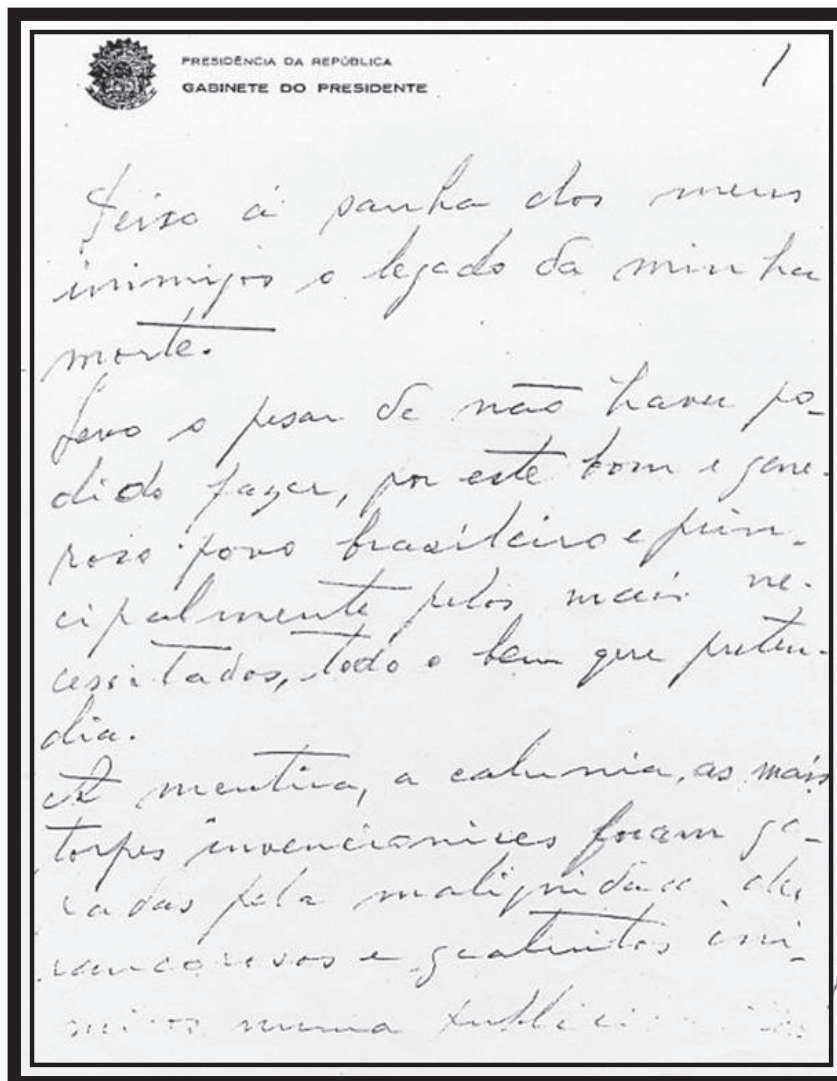 PRESIDÊNCIA DA REPÚBLICA
GABINETE DO PRESIDENTE
1
Deixo á sanha dos meus
inimigos o legado da minha
morte.
Levo o pesar de não haver po-
dido fazer, por este bom e gene-
roso povo brasileiro e prin-
cipalmente pelos mais ne-
cessitados, todo o bem que preten-
dia.
A mentira, a calumnia, as mais
torpes invencionices foram ge-
radas pela malignidade de
rancorosos e gratuitos ini-
migos numa